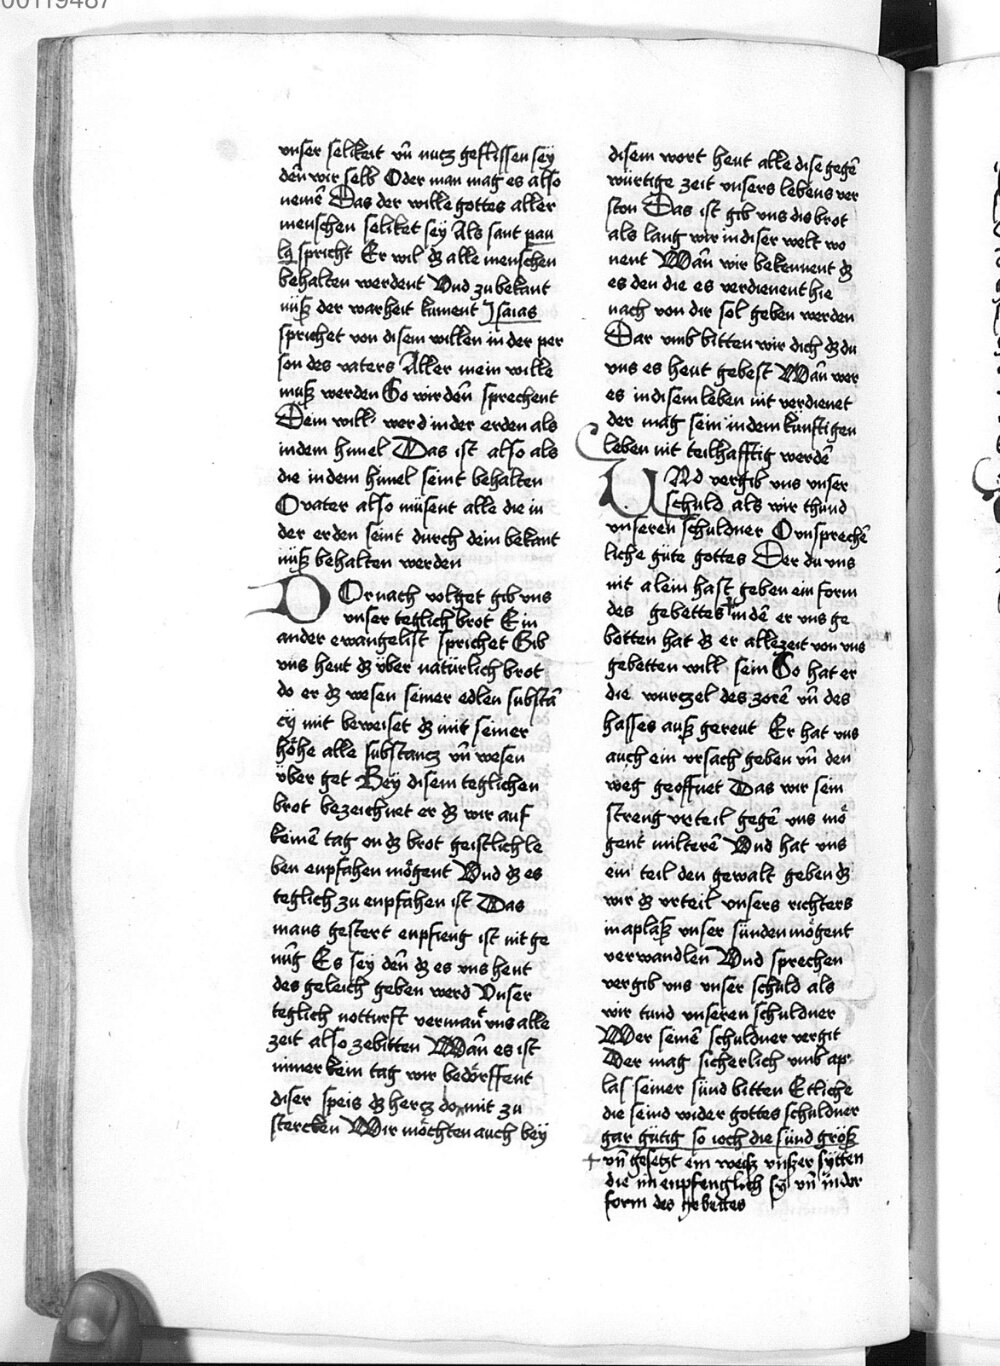 00119487
vnser selikeit vn̄ nutz geflissen sey
den̄ wir selb Oder man mag es also
nemē Das der wille gottes aller
menschen seliket sey Als sant pau
lꝯ spricht Er wil dz alle menschen
behalten werdent Vnd zu bekant
nüß der warheit kument Jsaias
sprichet von disem willen in der per
son des vaters Aller mein wille
muß werden So wir den̄ sprechent
Dein will werd in der erden als
in dem himel Das ist also als
die in dem himel seint behalten
O vater also müsent alle die in
der erden seint durch dein bekant
nüß behalten werden
DOrnach volget gib vns
vnser teglich brot Ein
ander ewangelist sprichet Gib
vns heut dz über natürlich brot
do er dz wesen seiner edlen substā
cÿ mit beweiset dz mit seiner
höhe alle substancz vn̄ wesen
über get Bey disem teglichen
brot bezeichnet er dz wir auf
keinē tag on dz brot geistlich le
ben enpfahen mögent Vnd dz es
teglich zu enpfahen ist Das
mans gestert enpfieng ist nit ge
nūg Es sey den̄ dz es vns heut
des geleich geben werd Vnser
teglich notturft vermant vns alle
zeit also zebitten Wan̄ es ist
nimer kein tag wir bedörffent
diser speis dz hercz do mit zu
stercken Wir möchten auch bey
disem wort heut alle dise gegē
würtige zeit vnsers lebens ver
ston Das ist gib vns dis brot
als lang wir in diser welt wo
nent Wan̄ wir bekennent dz
es den die es verdienent hie
nach von dir sol geben werden
Dar vmb bitten wir dich dz du
vns es heut gebest Wan̄ wer
es in disem leben nit verdienet
der mag sein in dem künftigen
leben nit teilhafftig werdē
VNd vergib vns vnser
schuld als wir thund
vnseren schuldner O vnsprechē
liche güte gottes Der du vns
nit alein hast geben ein form
des gebettes in dē er vns ge
botten hat dz er allezeit von vns
gebetten will sein So hat er
die wurczel des zorē vn̄ des
hasses auß gereut Er hat vns
auch ein vrsach geben vn̄ den
weg geoffnet Das wir sein
streng vrteil gegē vns mö
gent milterē Vnd hat vns
ein teil den gewalt geben dz
wir dz vrteil vnsers richters
in aplaß vnser sünden mögent
verwandlen Vnd sprechen
vergib vns vnser schuld als
wir tund vnseren schuldner
Wer seinē schuldner vergit
Der mag sicherlich vmb ap
las seiner sünd bitten Etliche
die seind wider gottes schuldner
gar gütig so ioch die sünd größ
+ vn̄ gesetzt ein weiß vnßer sytten
die im enpfenglich sy vn̄ in der
form des gebettes